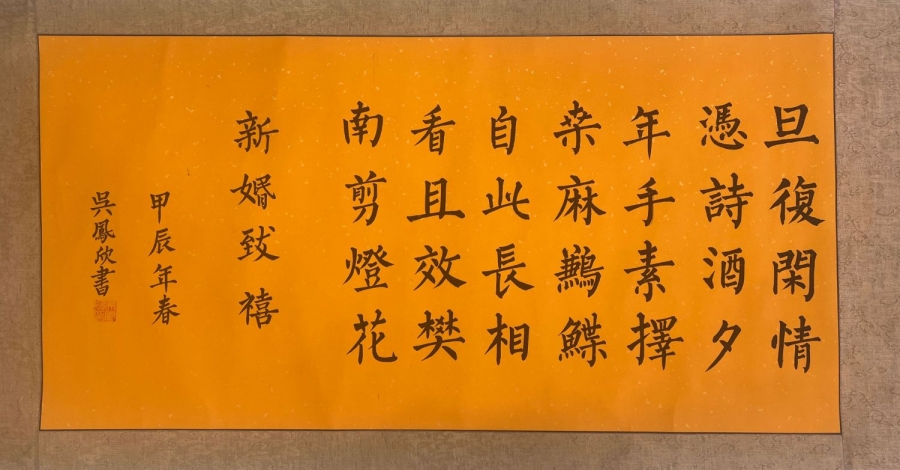 旦復閑情
憑詩酒夕
年手素擇
桒麻鶼鰈
自此長相
看且效樊
南剪燈花
新婚致禧
甲辰年春
吳鳳欣書